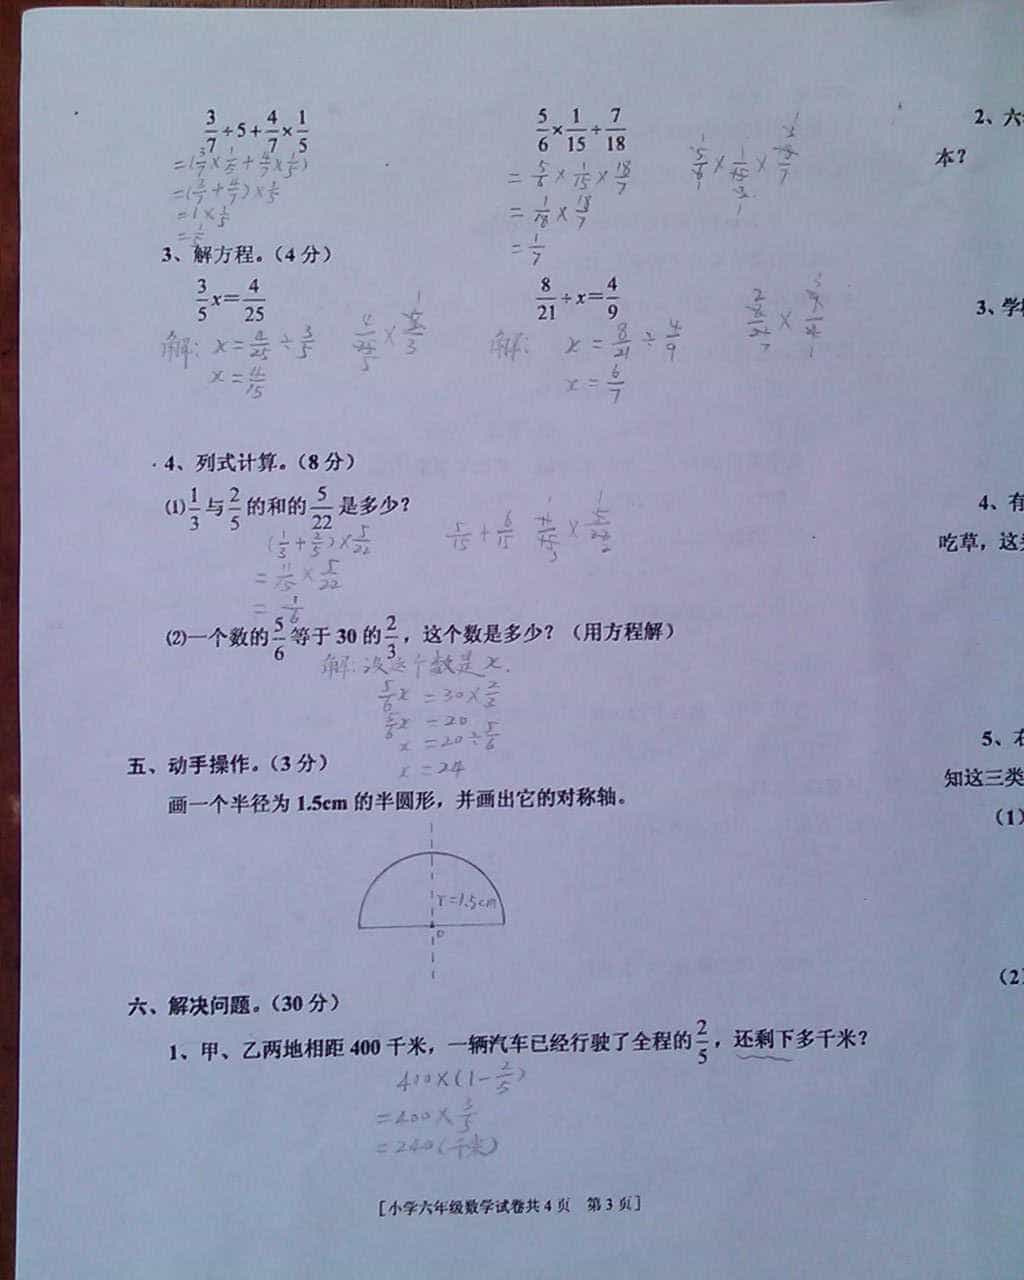 3/7÷5+4/7×1/5
=(3/7×1/5+4/7×1/5)
=(3/7+4/7)×1/5
=1×1/5
=1/5
5/6×1/15÷7/18
=5/6×1/15×18/7
=1/18×18/7
=1/7
3、解方程。(4分)
3/5x=4/25
解: x=4/25÷3/5
x=4/15
8/21÷x=4/9
解: x=8/21÷4/9
x=6/7
4、列式计算。(8分)
⑴1/3与2/5的和的5/22是多少?
(1/3+2/5)×5/22
5/15+6/15
11/15×5/22
=11/15×5/22
=1/6
⑵一个数的5/6等于30的2/3，这个数是多少?（用方程解）
解:设这个数是x.
5/6x=30×2/3
5/6x=20
x=20÷5/6
x=24
五、动手操作。(3分)
画一个半径为1.5cm的半圆形，并画出它的对称轴。
r=1.5cm
o
六、解决问题。(30分)
1、甲、乙两地相距400千米，一辆汽车已经行驶了全程的2/5，还剩下多千米?
400×(1-2/5)
=400×3/5
=240(千米)
[小学六年级数学试卷共4页 第3页]
2、六
本?
3、学
4、有
吃草，这
5、在
知这三类
(1)
(2)